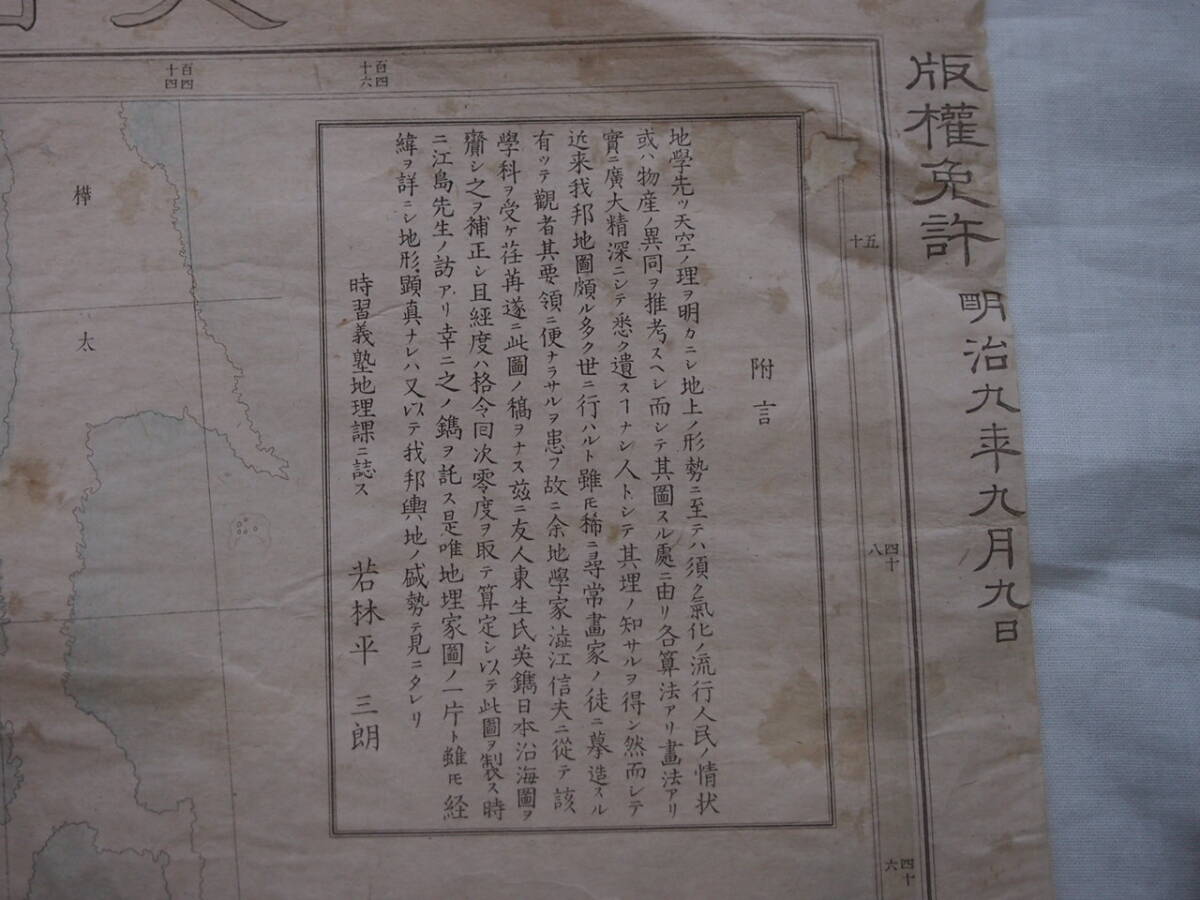 版權免許 明治九年九月九日
百四十六
百四十四
五十
四十八
四十六
樺太
附言
地學先ツ天空ノ理ヲ明カニシ地上ノ形勢ニ至テハ須ク氣化ノ流行人民ノ情状
或ハ物産ノ異同ヲ推考スヘシ而シテ其圖スル處ニ由リ各算法アリ畫法アリ
實ニ廣大精深ニシテ悉ク遺スヿナシ人トシテ其理ノ知サルヲ得ン然而シテ
近来我邦地圖頗ル多ク世ニ行ハルト雖モ稀ニ尋常畫家ノ徒ニ摹造スル
有ツテ觀者其要領ニ便ナラサルヲ患フ故ニ余地學家澁江信夫ニ從テ該
學科ヲ受ケ荏苒遂ニ此圖ノ稿ヲナス兹ニ友人東生氏英鐫日本沿海圖ヲ
齎シ之ヲ補正シ且經度ハ格令回次零度ヲ取テ算定シ以テ此圖ヲ製ス時
ニ江島先生ノ訪アリ幸ニ之ノ鐫ヲ託ス是唯地理家圖ノ一片ト雖モ経
緯ヲ詳ニシ地形顕真ナレハ又以テ我邦輿地ノ盛勢テ見ニタレリ
時習義塾地理課ニ誌ス 若林平三朗